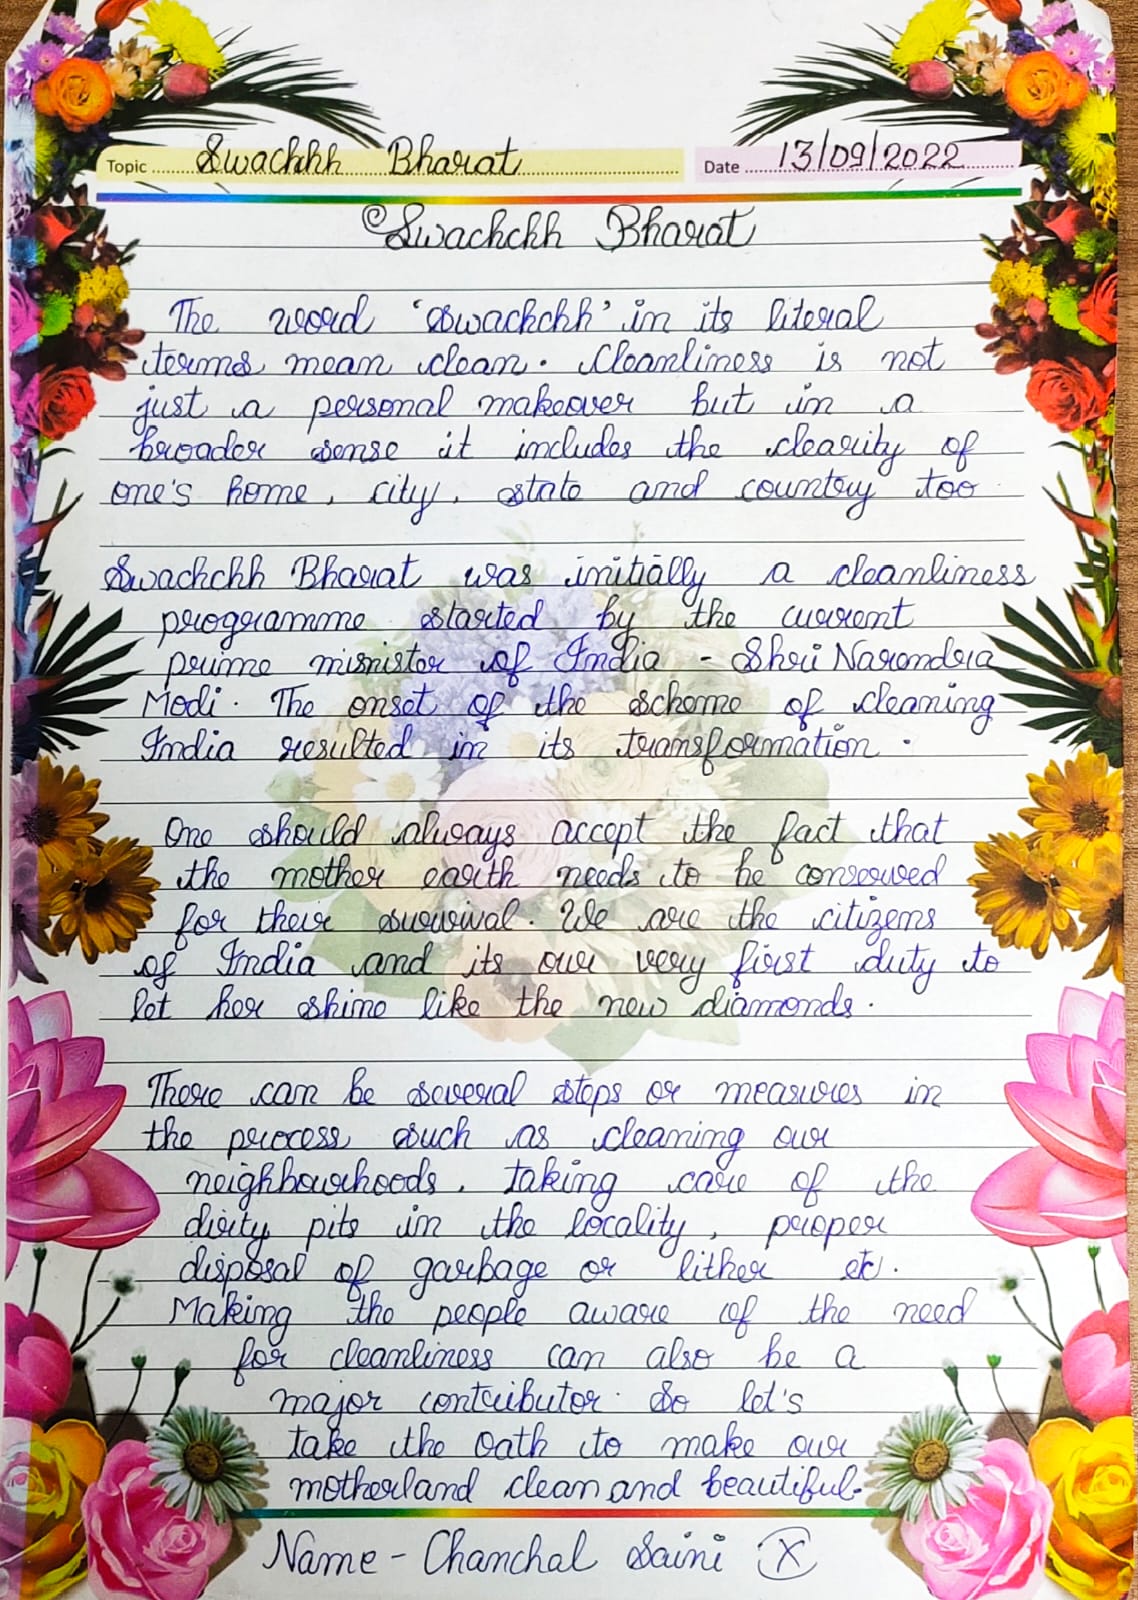 Topic Swachhh Bharat Date 13/09/2022
Swachchh Bharat
The word 'swachchh' in its literal
terms mean clean. Cleanliness is not
just a personal makeover but in a
broader sense it includes the clearity of
one's home, city, state and country too
Swachchh Bharat was initially a cleanliness
programme started by the current
prime misnister of India - Shri Narendra
Modi. The onset of the scheme of cleaning
India resulted in its transformation.
One should always accept the fact that
the mother earth needs to be conserved
for their survival. We are the citizens
of India and its our very first duty to
let her shine like the new diamonds.
There can be several steps or measures in
the process such as cleaning our
neighbourhoods, taking care of the
dirty pits in the locality, proper
disposal of garbage or lither etc.
Making the people aware of the need
for cleanliness can also be a
major contributor. So let's
take the oath to make our
motherland clean and beautiful.
Name - Chanchal Saini X